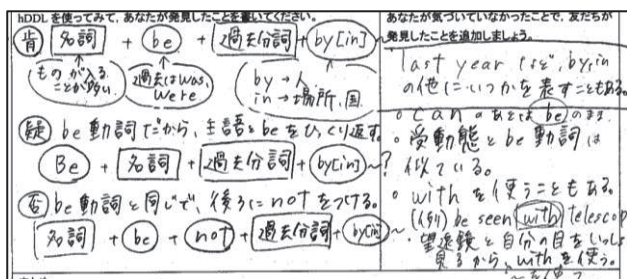 hDDL を使ってみて、あなたが発見したことを書いてください。
肯 名詞 + be + 過去分詞 + by[in]~
ものが入ることが多い
過去はwas, were
by → 人
in → 場所、国
疑 be動詞だから、主語とbeをひっくり返す。
Be + 名詞 + 過去分詞 + by[in]~?
否 be動詞と同じで、後ろにnotをつける。
名詞 + be + not + 過去分詞 + by[in]~
あなたが気づいていなかったことで、友だちが
発見したことを追加しましょう。
last year など、by, in
の他にいつかを表すこともある。
○ can のあとは be のまま.
○ 受動態とbe動詞は
似ている。
○ with を使うこともある。
(例) be seen with telescop
・望遠鏡と自分の目をいっしょ
見るから、withを使う。
~を使って